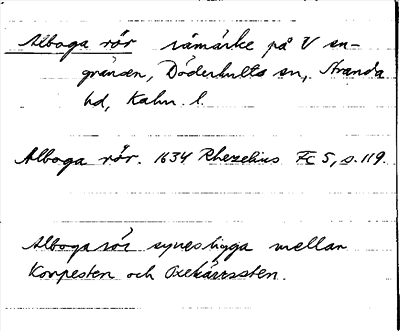 Alboga rör råmärke på V sn-
gränsen, Döderhults sn, Stranda
hd, Kalm. l.
Alboga rör. 1634 Rhezelius Fc 5, s. 119.
Alboga rör synes ligga mellan
Korpesten och Oxekärrssten.